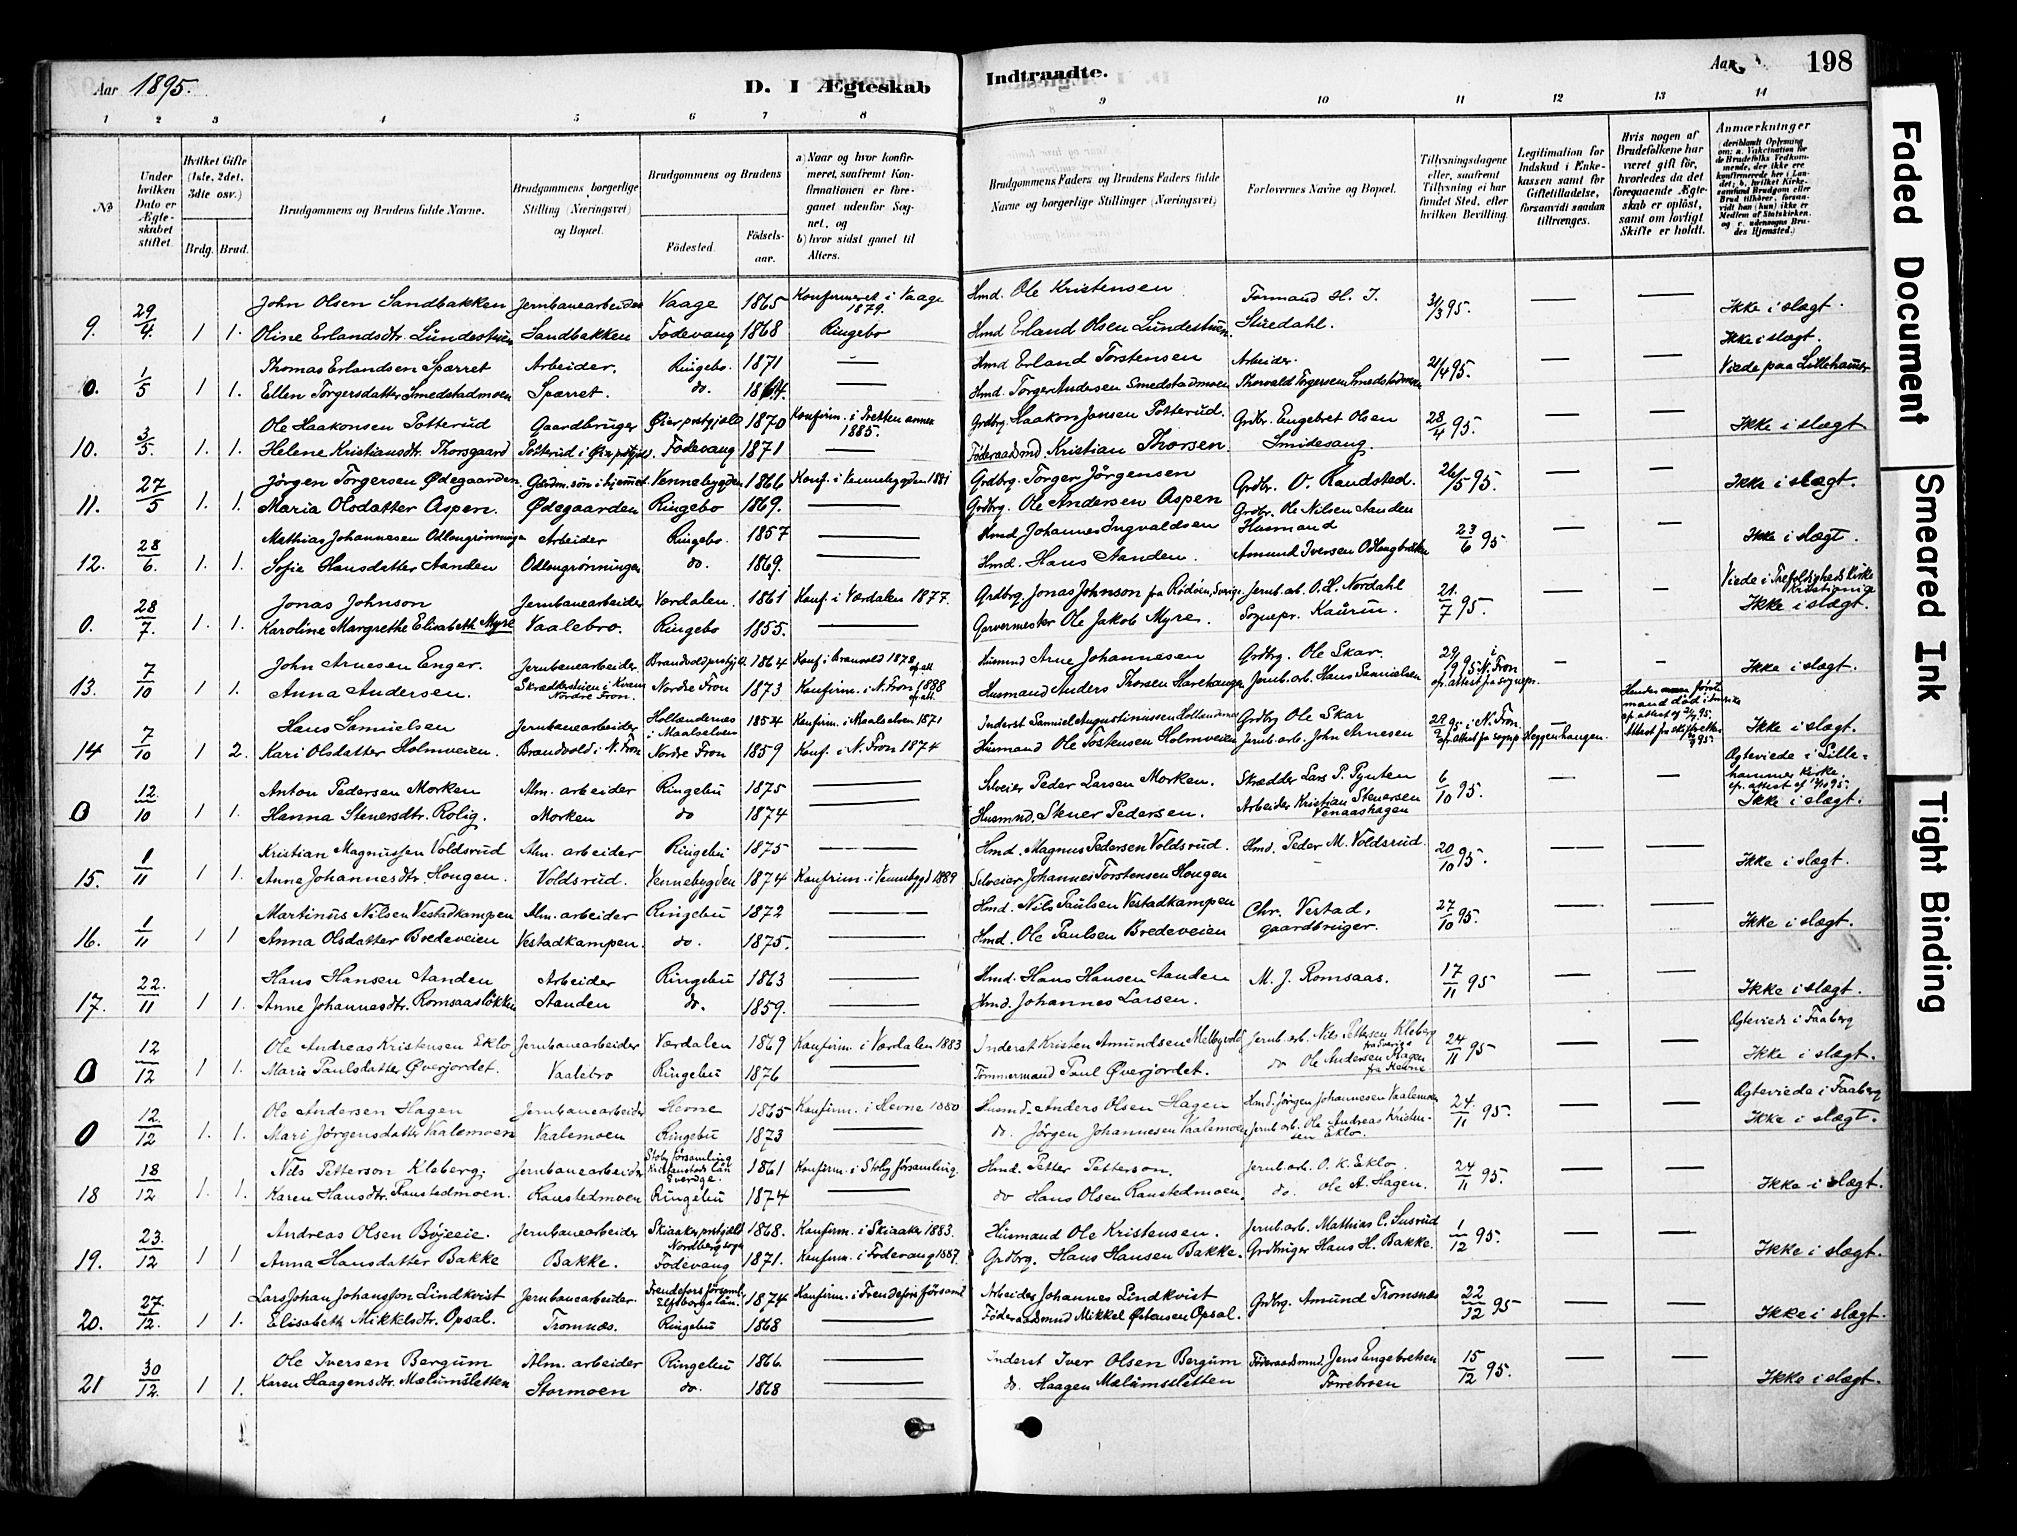 Aar 1895.
D. I Ægteskab
Indtraadte.
Aar
198
1 2 3 4 5 6 7 8 9 10 11 12 13 14
No
Under hvilken Dato er Ægteskabet stiftet.
Hvilket Gifte (1ste, 2det, 3die osv.)
Brdg. Brud.
Brudgommens og Brudens fulde Navne.
Brudgommens borgerlige Stilling (Næringsvei) og Bopæl.
Brudgommens og Brudens
Fødested.
Fødselsaar.
a) Naar og hvor konfirmeret, saafremt Konfirmationen er foregaaet udenfor Sognet, og
b) hvor sidst gaaet til Alters.
Brudgommens Faders og Brudens Faders fulde Navne og borgerlige Stillinger (Næringsvei)
Forlovernes Navne og Bopæl.
Tillysningsdagene eller, saafremt Tillysning ei har fundet Sted, efter hvilken Bevilling.
Legitimation for Indskud i Enkekassen samt for Giftetilladelse, forsaavidt saadan tiltrænges.
Hvis nogen af Brudefolkene har været gift før, hvorledes da det foregaaende Ægteskab er opløst, samt om lovligt Skifte er holdt.
Anmærkninger
John Olsen Sandbakken Jernbanearbeider Vaage 1865 Konfirmeret i Vaage 1879. Hmd. Ole Kristensen Formand H. J. 31/3 95. — — Ikke i slægt.
9. 29/4 1 1. Oline Erlandsdtr. Lundestuen Sandbakken Fodevang 1868 Ringebo Hmd Erland Olsen Lundestuen. Stuedahl.
Thomas Erlandsen Spærret Arbeider. Ringebo. 1871 — Hmd Erland Torstensen Arbeider. 21/4 95. — — Ikke i slægt. Viede paa Lillehammer
0. 1/5 1 1. Ellen Torgersdatter Smedstadmoen Spærret. do. 1864. — Hmd. Torger Andersen Smedstadmoen Thorvald Torgersen Smedstadmoen
Ole Haakonsen Potterud Gaardbruger Øier prstgjeld 1870 Konfirm. i Tretten annex 1885. Grdbrg. Haakon Jansen Potterud. Grdbr. Engebret Olsen 28/4 95. — — Ikke i slægt
10. 3/5. 1. 1. Helene Kristiansdtr. Thorsgaard Potterud i Øier prstgjeld. Fodevang 1871 — Føderaadsmd Kristian Thorsen Smidesang.
Jörgen Torgersen Ødegaarden. Gdm. søn i hjemmet Vennebygden 1866 Konf. i Vennebygden 1881 Grdbrg. Torger Jörgensen Grdbr. O. Randstad. 26/5 95. — — Ikke i slægt.
11. 27/5 1. 1. Maria Olsdatter Aspen. Ødegaarden Ringebo 1869. — Grdbrg. Ole Andersen Aspen Grdbr. Ole Nilsen Aanden
Mathias Johannesen Odlongrønningen Arbeider Ringebo. 1857 — Hmd Johannes Ingvaldsen Husmand 23/6 95 — — Ikke i slægt.
12. 28/6. 1. 1. Sofie Hansdatter Aanden Odlongrønningen do. 1869. — Hmd. Hans Aanden. Amund Iversen Odlongbrækken
Jonas Johnson Jernbanearbeider Værdalen. 1861 Konf. i Værdalen 1877. Grdbrg. Jonas Johnson fra Rödöen, Sverige. Jernb. arb. O. H. Nordahl 21./7 95. — — Viede i Trefoldigheds Kirke Kristiania Ikke i slægt.
0. 28/7. 1. 1. Karoline Margrethe Elisabeth Myre Vaalebro. Ringebo 1855. — Garvermester Ole Jakob Myre. Sognepr. Kaurin.
John Arnesen Enger. Jernbanearbeider Brandvold prstgjeld 1864 Konf i Branvold 1878 Husmd Arne Johannesen Grdbrg. Ole Skar. 29/9 95 i N. Fron — — Ikke i slægt.
13. 7/10 1 1. Anna Andersen. Skrædderstuen i Kvam Nordre Fron. Nordre Fron 1873 Konfirm. i N. Fron 1888 Husmand Anders Thorsen Harehaugen Jernb. arb. Hans Samuelsen
Hans Samuelsen Jernbanearbeider Hollændernæs i Maalselven 1854 Konfirm. i Maalselven 1871 Inderst Samuel Augustinussen Hollændernæs Grdbrg Ole Skar 29/9 95 i N. Fron — Ikke i slægt.
14 7/10 1 2. Kari Olsdatter Holmveien. Brandvold i N. Fron Nordre Fron 1859 Konf. i N. Fron 1874 Husmand Ole Tostensen Holmveien Jernb. arb. John Arnesen Heggenhaugen.
Anton Pedersen Morken Alm. arbeider Ringebu 1875 — Selveier Peder Larsen Morken. Skrædder Lars P. Pynten 6/10 95. — — Ægteviede i Lillehammer Kirke. Ikke i slægt.
0 12/10 1 1. Hanna Stenersdtr. Rolig. Morken do 1874 — Husmnd. Stener Pedersen. Arbeider Kristian Stenersen Venaashagen
Kristian Magnussen Voldsrud Alm. arbeider Ringebu 1875 — Hmd. Magnus Pedersen Voldsrud. Hmd. Peder M. Voldsrud 20/10 95. — — Ikke i slægt.
15. 1/11 1 1. Anne Johannesdtr. Hougen. Voldsrud. Vennebygden 1874 Konfirm. i Vennebygd 1889 Selveier Johannes Torstensen Hougen
Martinus Nilsen Vestadkampen Alm. arbeider Ringebu 1872 — Hmd. Nils Paulsen Vestadkampen Chr. Vestad, 27/10 95. — — Ikke i slægt.
16. 1/11 1 1 Anna Olsdatter Bredeveien Vestadkampen. do. 1875. — Hmd. Ole Paulsen Bredeveien gaardbruger.
Hans Hansen Aanden Arbeider Ringebu 1863 — Hmd. Hans Hansen Aanden M. J. Romsaas. 17/11 95 — — Ikke i slægt.
17. 22./11 1 1. Anne Johannesdtr. Romsaasløkken Aanden do. 1859. — Hmd. Johannes Larsen.
Ole Andreas Kristensen Eklo Jernbanearbeider Værdalen 1869 Konfirm. i Værdalen 1883 Inderst Kristen Amundsen Melbyvold Jernb. arb. Nils Pettersen Kleberg fra Sverige 24/11 95 — — Ægteviede i Faaberg Ikke i slægt.
0 12/12 1 1. Marie Paulsdatter Øverjordet. Vaalebro Ringebu 1876 — Tømmermand Paul Øverjordet. do Ole Andersen Hagen fra Hevne
Ole Andersen Hagen Jernbanearbeider Hevne 1865 Konfirm. i Hevne 1880 Husmd. Anders Olsen Hagen Hmd. Jørgen Johannesen Vaalemoen 24/11 95. — — Ægteviede i Faaberg Ikke i slægt.
0 12./12 1. 1. Mari Jørgensdatter Vaalemoen Vaalemoen Ringebu 1873 — do. Jørgen Johannesen Vaalemoen Jernb. arb. Ole Andreas Kristensen Eklo.
Nils Petterson Kleberg. Jernbanearbeider Stoby församling Kristianstads Län Sverdge. 1861 Konfirm. i Stoby församling. Hmd. Petter Petterson. Jernb. arb. O. K. Eklo. 24/11 95. — — Ikke i slægt.
18 18/12 1. 1. Karen Hansdtr. Ranstedmoen. Ranstedmoen Ringebu 1874 — do Hans Olsen Ranstedmoen. do. Ole A. Hagen.
Andreas Olsen Böjeeie. Jernbanearbeider Skiaaker prstgjeld Nordberg sogn 1868. Konfirm. i Skiaaker 1883. Husmand Ole Kristensen. Jernb. arb. Mathias C. Susrud 1/12 95. — — Ikke i slægt.
19. 23./12 1 1 Anna Hansdatter Bakke Bakke. Fodevang 1871. Konfirm. i Fodevang 1887. Grdbrg. Hans Hansen Bakke. Grdbruger Hans H. Bakke.
Lars Johan Johansson Lindkvist Jernbanearbeider. Frendefors församl. Elfsborgs län. 1874 Konfirm. i Frendefors församl Arbeider Johannes Lindkvist Grdbrg. Amund Tromsnæs 22/12 95 — — Ikke i slægt.
20. 27./12. 1 1. Elisabeth Mikkelsdtr. Opsal. Tromnæs. Ringebu 1868 — Føderaadsmnd Mikkel Østensen Opsal.
Ole Iversen Bergum Alm. arbeider Ringebu 1866. — Inderst Iver Olsen Bergum Føderaadsmnd. Jens Engebretsen 15/12 95. — — Ikke i slægt.
21 30/12. 1 1. Karen Haagensdtr. Mælumsletten Stormoen do. 1868 — do. Haagen Mælumsletten Forrebroen
Faded Document
Smeared Ink
Tight Binding